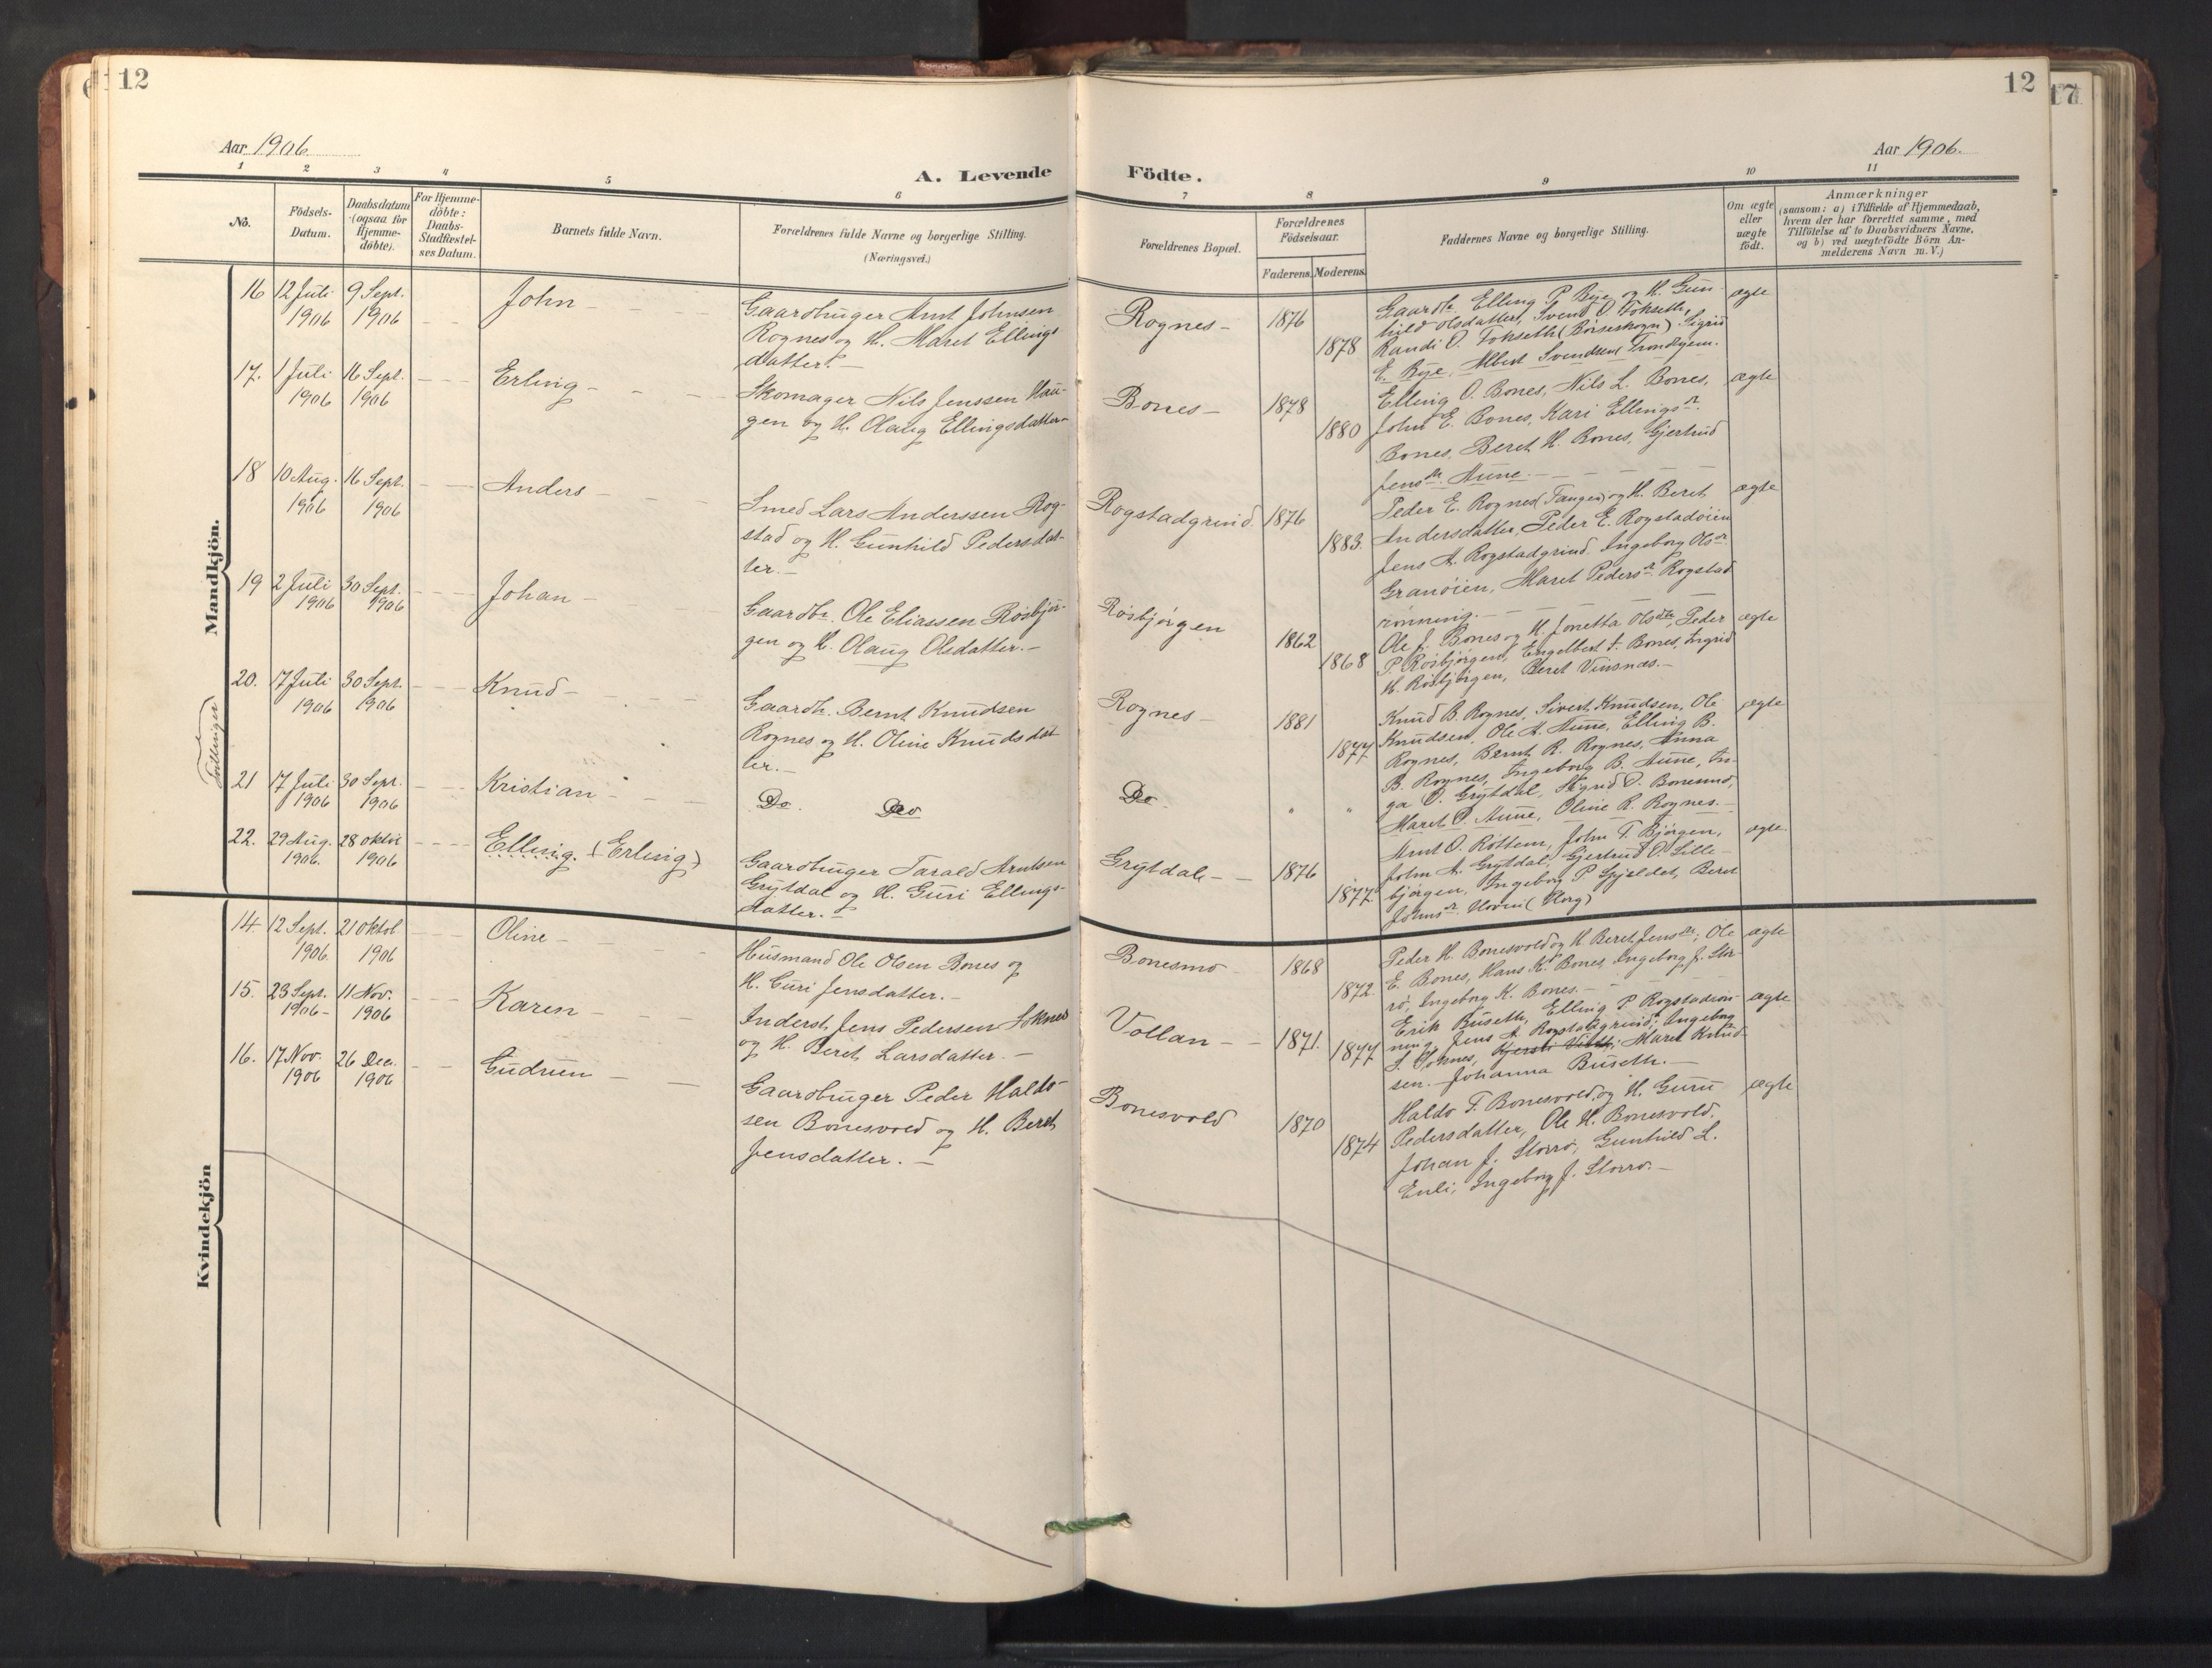 12
12
17
Aar 1906.
Aar 1906.
A. Levende
Födte.
1
2
3
4
5
6
7
8
9
10
11
No.
Födsels-
Datum.
Daabsdatum
(ogsaa for
Hjemme-
döbte).
For Hjemme-
döbte:
Daabs-
Stadfæstel-
ses Datum.
Barnets fulde Navn.
Forældrenes fulde Navne og borgerlige Stilling.
(Næringsvei.)
Forældrenes Bopæl.
Forældrenes
Födselsaar.
Faderens.
Moderens.
Faddernes Navne og borgerlige Stilling.
Om ægte
eller
uægte
födt.
Anmærkninger
(saasom: a) i Tilfælde af Hjemmedaab,
hvem der har forrettet samme, med
Tilföielse af to Daabsvidners Navne,
og b) ved uægtefödte Börn An-
melderens Navn m. V.)
Mandkjön.
16
12 Juli
1906
9 Sept.
1906
John
Gaardbruger Arnt Johnsen
Rognes og H. Maret Ellings
datter.
Rognes
1876
1878
Gaardbr. Elling P. Bye og H. Gun-
hild Olsdatter, Svend O. Fokseth,
Randi O. Fokseth (Börseskogn) Sigrid
E. Bye, Albert Svendsen Trondhjem.
ægte
17.
1 Juli
1906
16 Sept.
1906
Erling
Skomager Nils Jenssen Hau-
gen og H. Olaug Ellingsdatter
Bones
1878
1880
Elling O. Bones, Nils L. Bones,
John E. Bones, Kari Ellingsdr.
Bones, Beret H. Bones, Gjertrud
Jensdr. Aune.
ægte
18
10 Aug.
1906
16 Sept.
1906
Anders
Smed Lars Anderssen Rog-
stad og H. Gunhild Pedersdat-
ter.
Rogstadgrind.
1876
1883.
Peder E. Rognes (Tangen) og H. Beret
Andersdatter, Peder E. Rogstadöien
Jens A. Rogstadgrind. Ingeborg Olsdr.
Granöien, Maret Pedersdr. Rogstad
rönning.
ægte
19
2 Juli
1906
30 Sept.
1906
Johan
Gaardbr. Ole Eliassen Rösbjör-
gen og H. Olaug Olsdatter.
Rösbjörgen
1862
1868
Ole J. Bones og H. Jonetta Olsdtr, Peder
P. Rösbjörgen, Engelbert J. Bones, Ingrid
H. Rösbjörgen, Beret Vinsnes.
ægte
Tvillinger
20.
17 Juli
1906
30 Sept.
1906
Knud
Gaardbr. Bernt Knudsen
Rognes og H. Oline Knudsdat
ter.
Rognes
1881
1877
Knud B. Rognes, Sivert Knudsen, Ole
Knudsen, Ole A. Aune, Elling B.
Rognes, Bernt R. Rognes, Anna
B. Rognes, Ingeborg B. Aune, In-
ga O. Grytdal, Sigrid O. Bonesmo,
Maret O. Aune, Oline R. Rognes.
ægte
21
17 Juli
1906
30 Sept.
1906
Kristian
Do. Do
Do.
" "
22.
29 Aug.
1906.
28 oktor
1906
Elling. (Erling)
Gaardbruger Tarald Arntsen
Grytdal og H. Guri Ellings-
datter.
Grytdal
1876
1877.
Arnt O. Rottem, John T. Björgen,
John A. Grytdal, Gjertrud O. Lille-
björgen, Ingeborg P. Spjeldet, Beret
Johnsdr. Hovin (Horg)
ægte.
Kvindekjön
14.
12 Sept.
1906.
21 oktob
1906
Oline
Husmand Ole Olsen Bones og
H. Guri Jensdatter.
Bonesmo
1868
1872.
Peder H. Bonesvold og H. Beret Jensdr, Ole
E. Bones, Hans K. Bones, Ingeborg J. Stor-
rö, Ingeborg K. Bones.
ægte
15.
23 Sept.
1906
11 Nov.
1906
Karen
Inderst, Jens Pedersen Soknes
og H. Beret Larsdatter.
Vollan
1871.
1877
Erik Buseth, Elling P. Rogstadrön-
ning, Jens A Rogstadgrind, Ingeborg
S. Soknes, Kjersti Maret Knud-
sen. Johanna Buseth.
ægte
16.
17 Nov.
1906
26 Dec.
1906
Gudrun
Gaardbruger Peder Haldo-
sen Bonesvold og H. Beret
Jensdatter.
Bonesvold
1870
1874
Haldo T. Bonesvold og H. Guru
Pedersdatter, Ole H. Bonesvold.
Johan J. Storrö, Gunhild L.
Enli, Ingeborg J. Storrö.
ægte